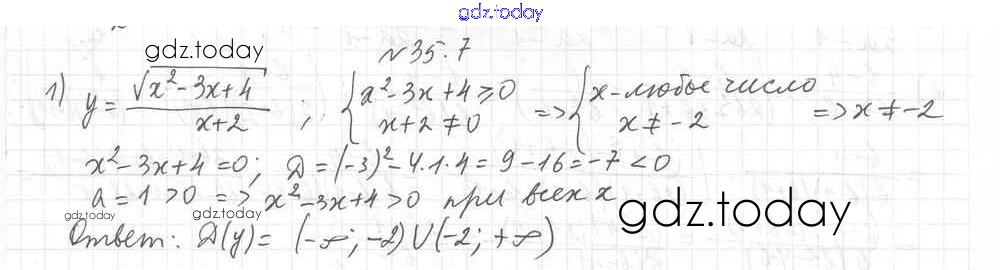 gdz.today
gdz.today
№35.7
1) y = √(x² - 3x + 4) / (x + 2) ; { x² - 3x + 4 ≥ 0 ; x + 2 ≠ 0 => { x - любое число ; x ≠ -2 => x ≠ -2
x² - 3x + 4 = 0; Д = (-3)² - 4·1·4 = 9 - 16 = -7 < 0
a = 1 > 0 => x² - 3x + 4 > 0 при всех x
gdz.today gdz.today gdz.today
Ответ: Д(y) = (-∞; -2) ∪ (-2; +∞)